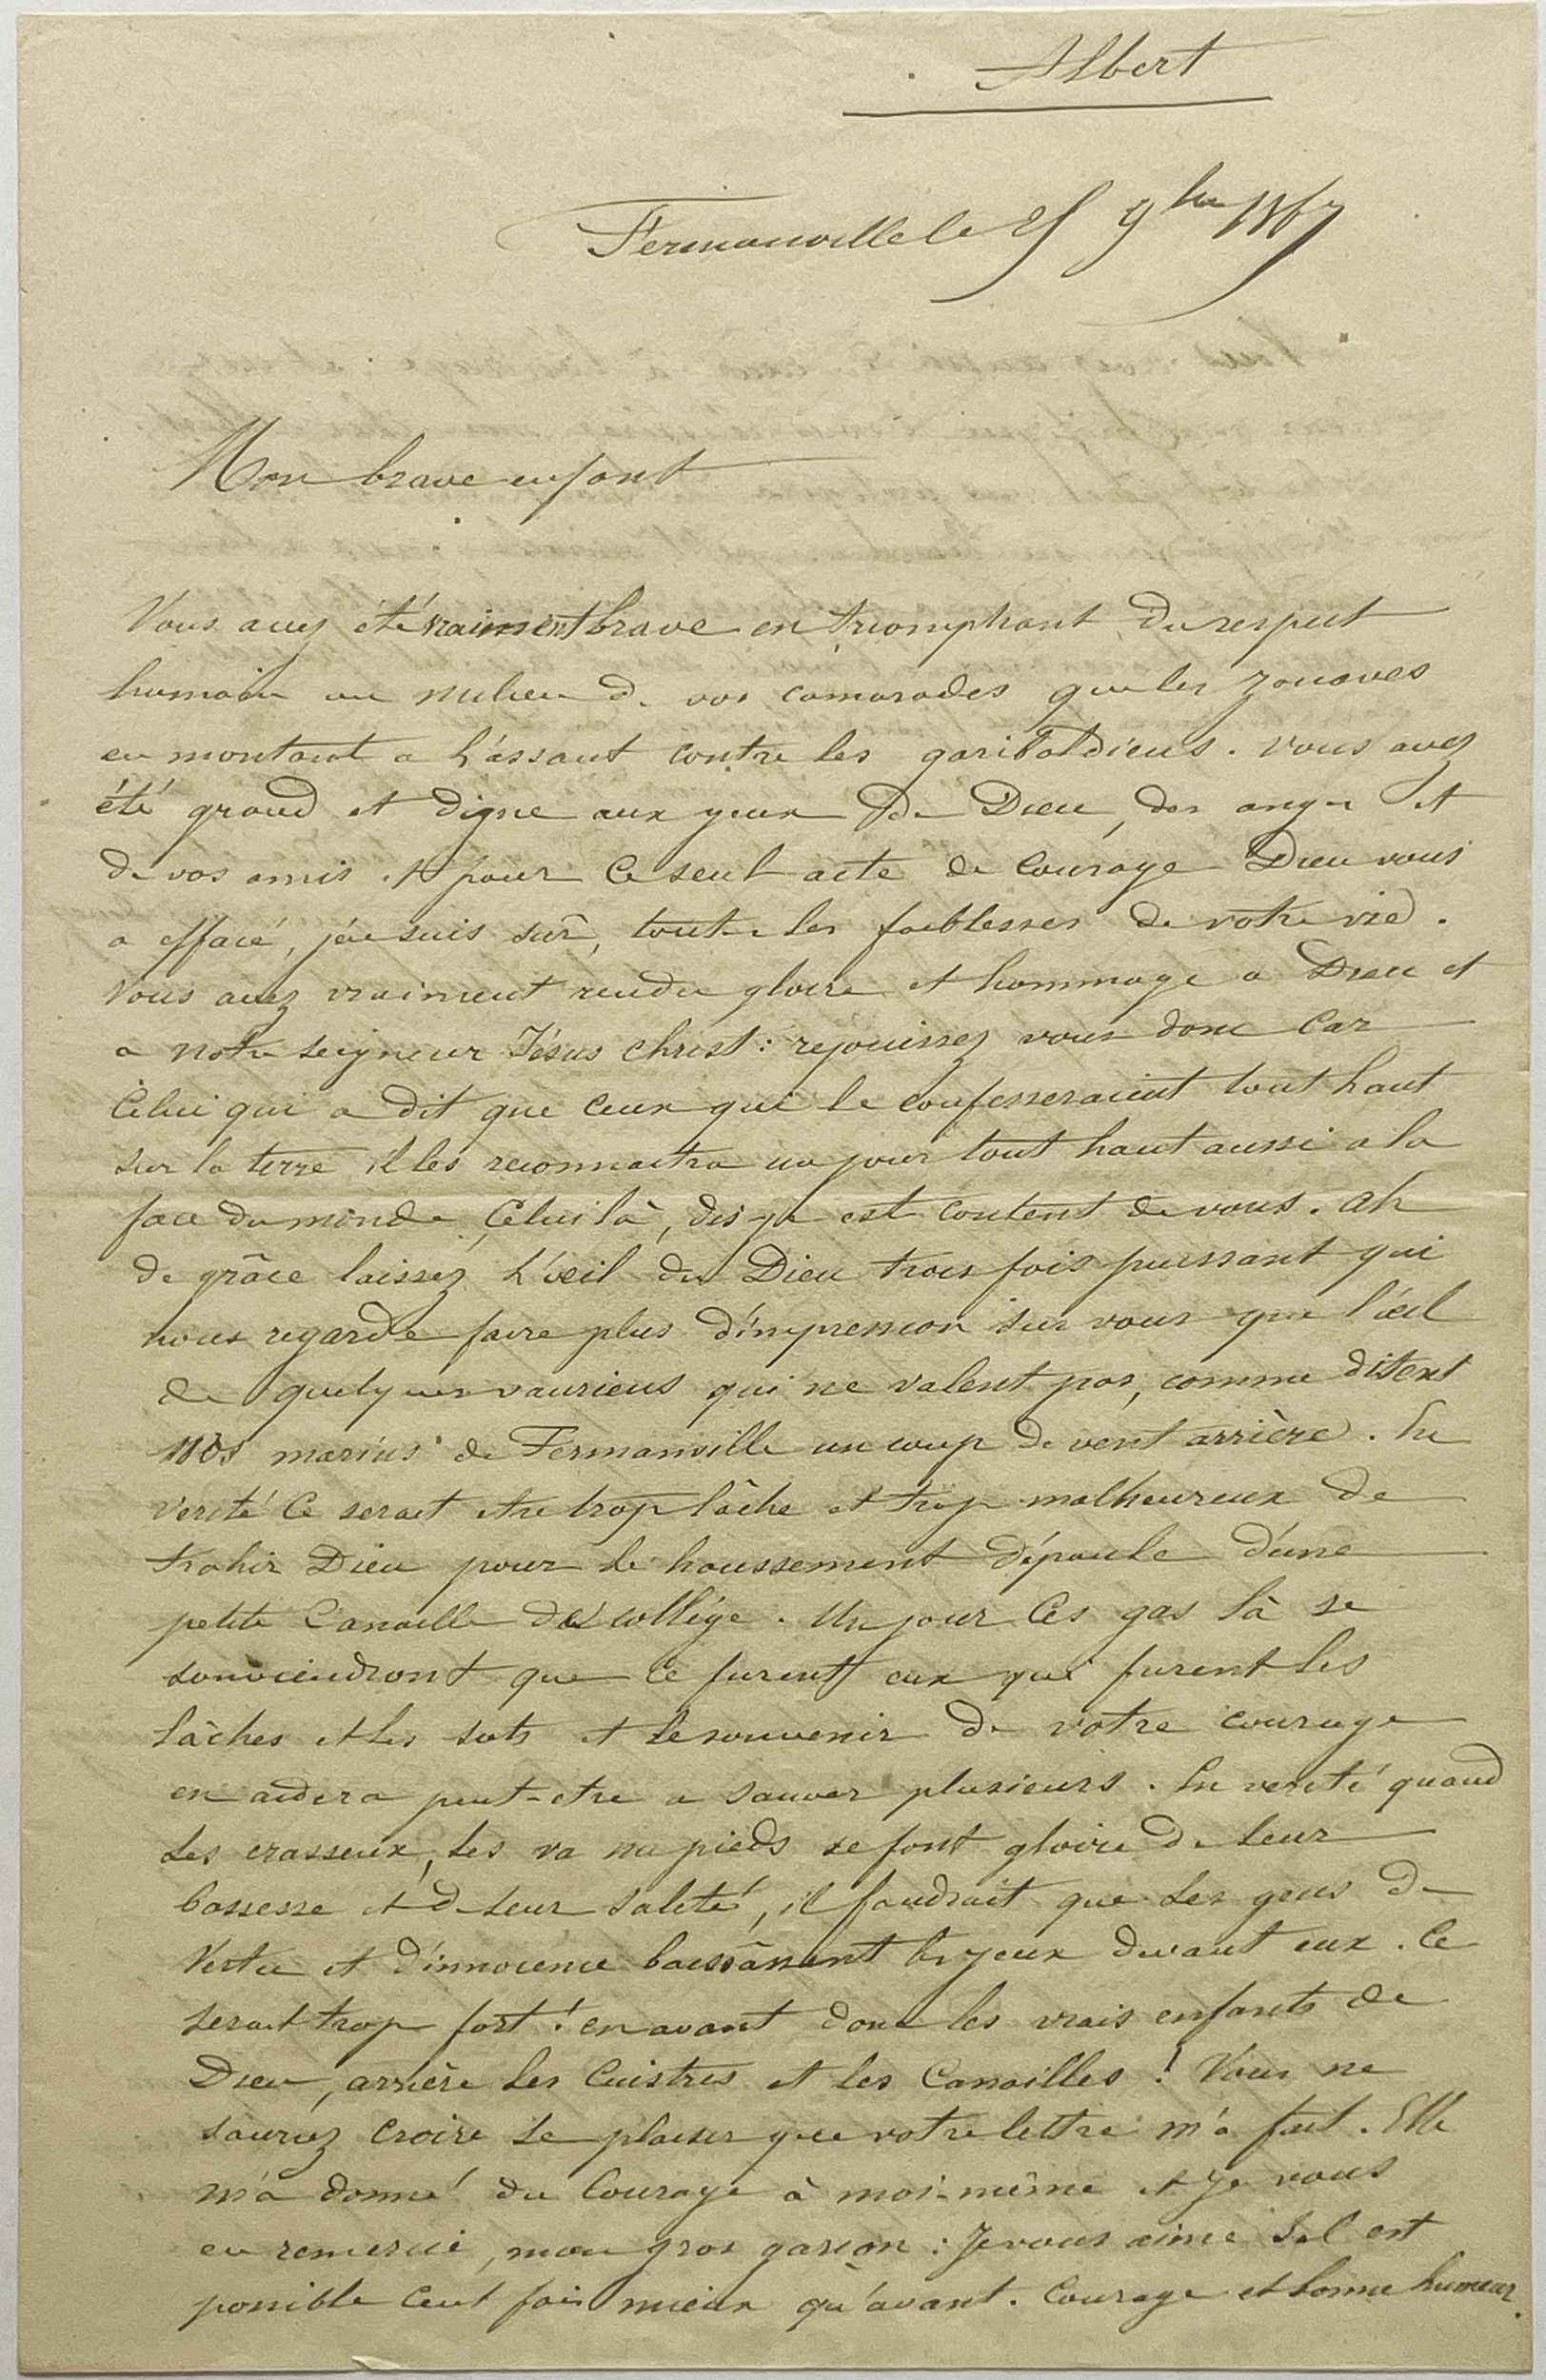 Albert
Fermanville le 25 9bre 1867
Mon brave enfant
Vous avez été vraiment brave en triomphant du respect
humain au milieu de vos camarades que les zouaves
en montant a l'assaut contre les garibaldiens. vous avez
été grand et digne aux yeux de Dieu, des anges et
de vos amis et pour ce seul acte de courage Dieu vous
a effacé, j'en suis sûr, toute les faiblesses de votre vie.
Vous avez vraiment rendu gloire et hommage a Dieu et
a notre seigneur Jésus christ : rejouissez vous donc car
Celui qui a dit que ceux qui le confesseraient tout haut
sur la terre il les reconnaitra un jour tout haut aussi a la
face du monde, Celui là, dis-je est content de vous. ah
de grâce laissez l'œil du Dieu trois fois puissant qui
nous regarde faire plus d'impression sur vous que l'œil
de quelques vauriens qui ne valent pas, comme disent
nos marins de Fermanville un coup de vent arrière. En
verité ce serait etre trop lâche et trop malheureux de
trahir Dieu pour le haussement d'épaule d'une
petite canaille de collége. Un jour ces gas là se
souviendront que ce furent eux qui furent les
lâches et les sots et le souvenir de votre courage
en aidera peut-etre a sauver plusieurs. En verité quand
les crasseux, les va nu pieds se font gloire de leur
bassesse et de leur saleté, il faudrait que les gens de
Vertu et d'innocence baissâssent les yeux devant eux. Ce
serait trop fort ! en avant donc les vrais enfants de
Dieu, arrière les cuistres et les canailles ! Vous ne
sauriez croire le plaisir que votre lettre m'a fait. Elle
m'a donné du courage à moi-même et je vous
en remercie, mon gros garçon : Je vous aime s'il est
possible cent fois mieux qu'avant. Courage et bonne humeur.